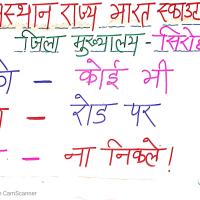 राज्य भारत स्काउट
जिला मुख्यालय - सिरो
को - कोई भी
- रोड पर
- ना निकले!
CamScanner